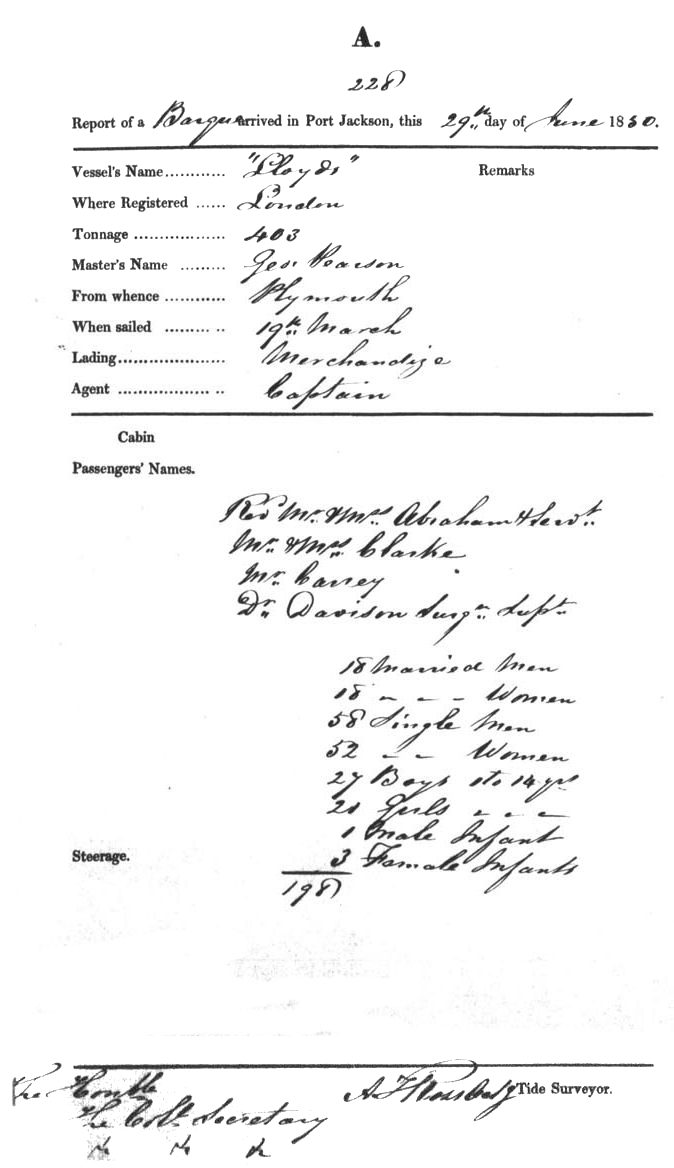 A.
228
Report of a Barque arrived in Port Jackson, this 29th day of June 1850.
Vessel's Name............ "Lloyds" Remarks
Where Registered ...... London
Tonnage .................. 403
Master's Name ......... Geo. Pearson
From whence ............ Plymouth
When sailed ......... .. 19th March
Lading..................... Merchandize
Agent .................. .. Captain
Cabin
Passengers' Names.
Revd Mr. & Mrs. Abraham & Servt.
Mr. & Mrs. Clarke
Mr.
Dr. Davison Surgn. Supt.
18 Married Men
18 - - - Women
58 Single Men
52 - - Women
27 Boys 1 to 14 yrs
21 Girls - - -
1 Male Infant
Steerage. 3 Female Infants
198
The Honble
The Coll. Secretary Tide Surveyor.